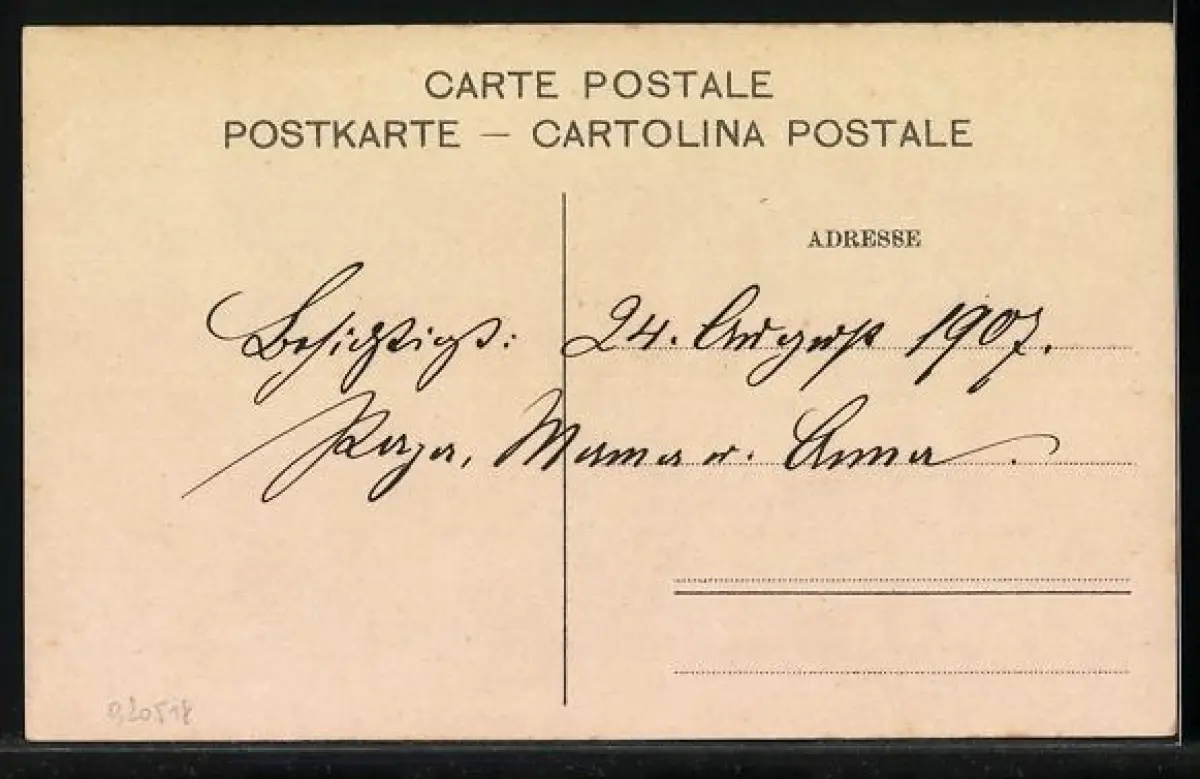 CARTE POSTALE
POSTKARTE — CARTOLINA POSTALE
ADRESSE
Besichtigt: 24. August 1907.
Papa, Mama u. Anna.